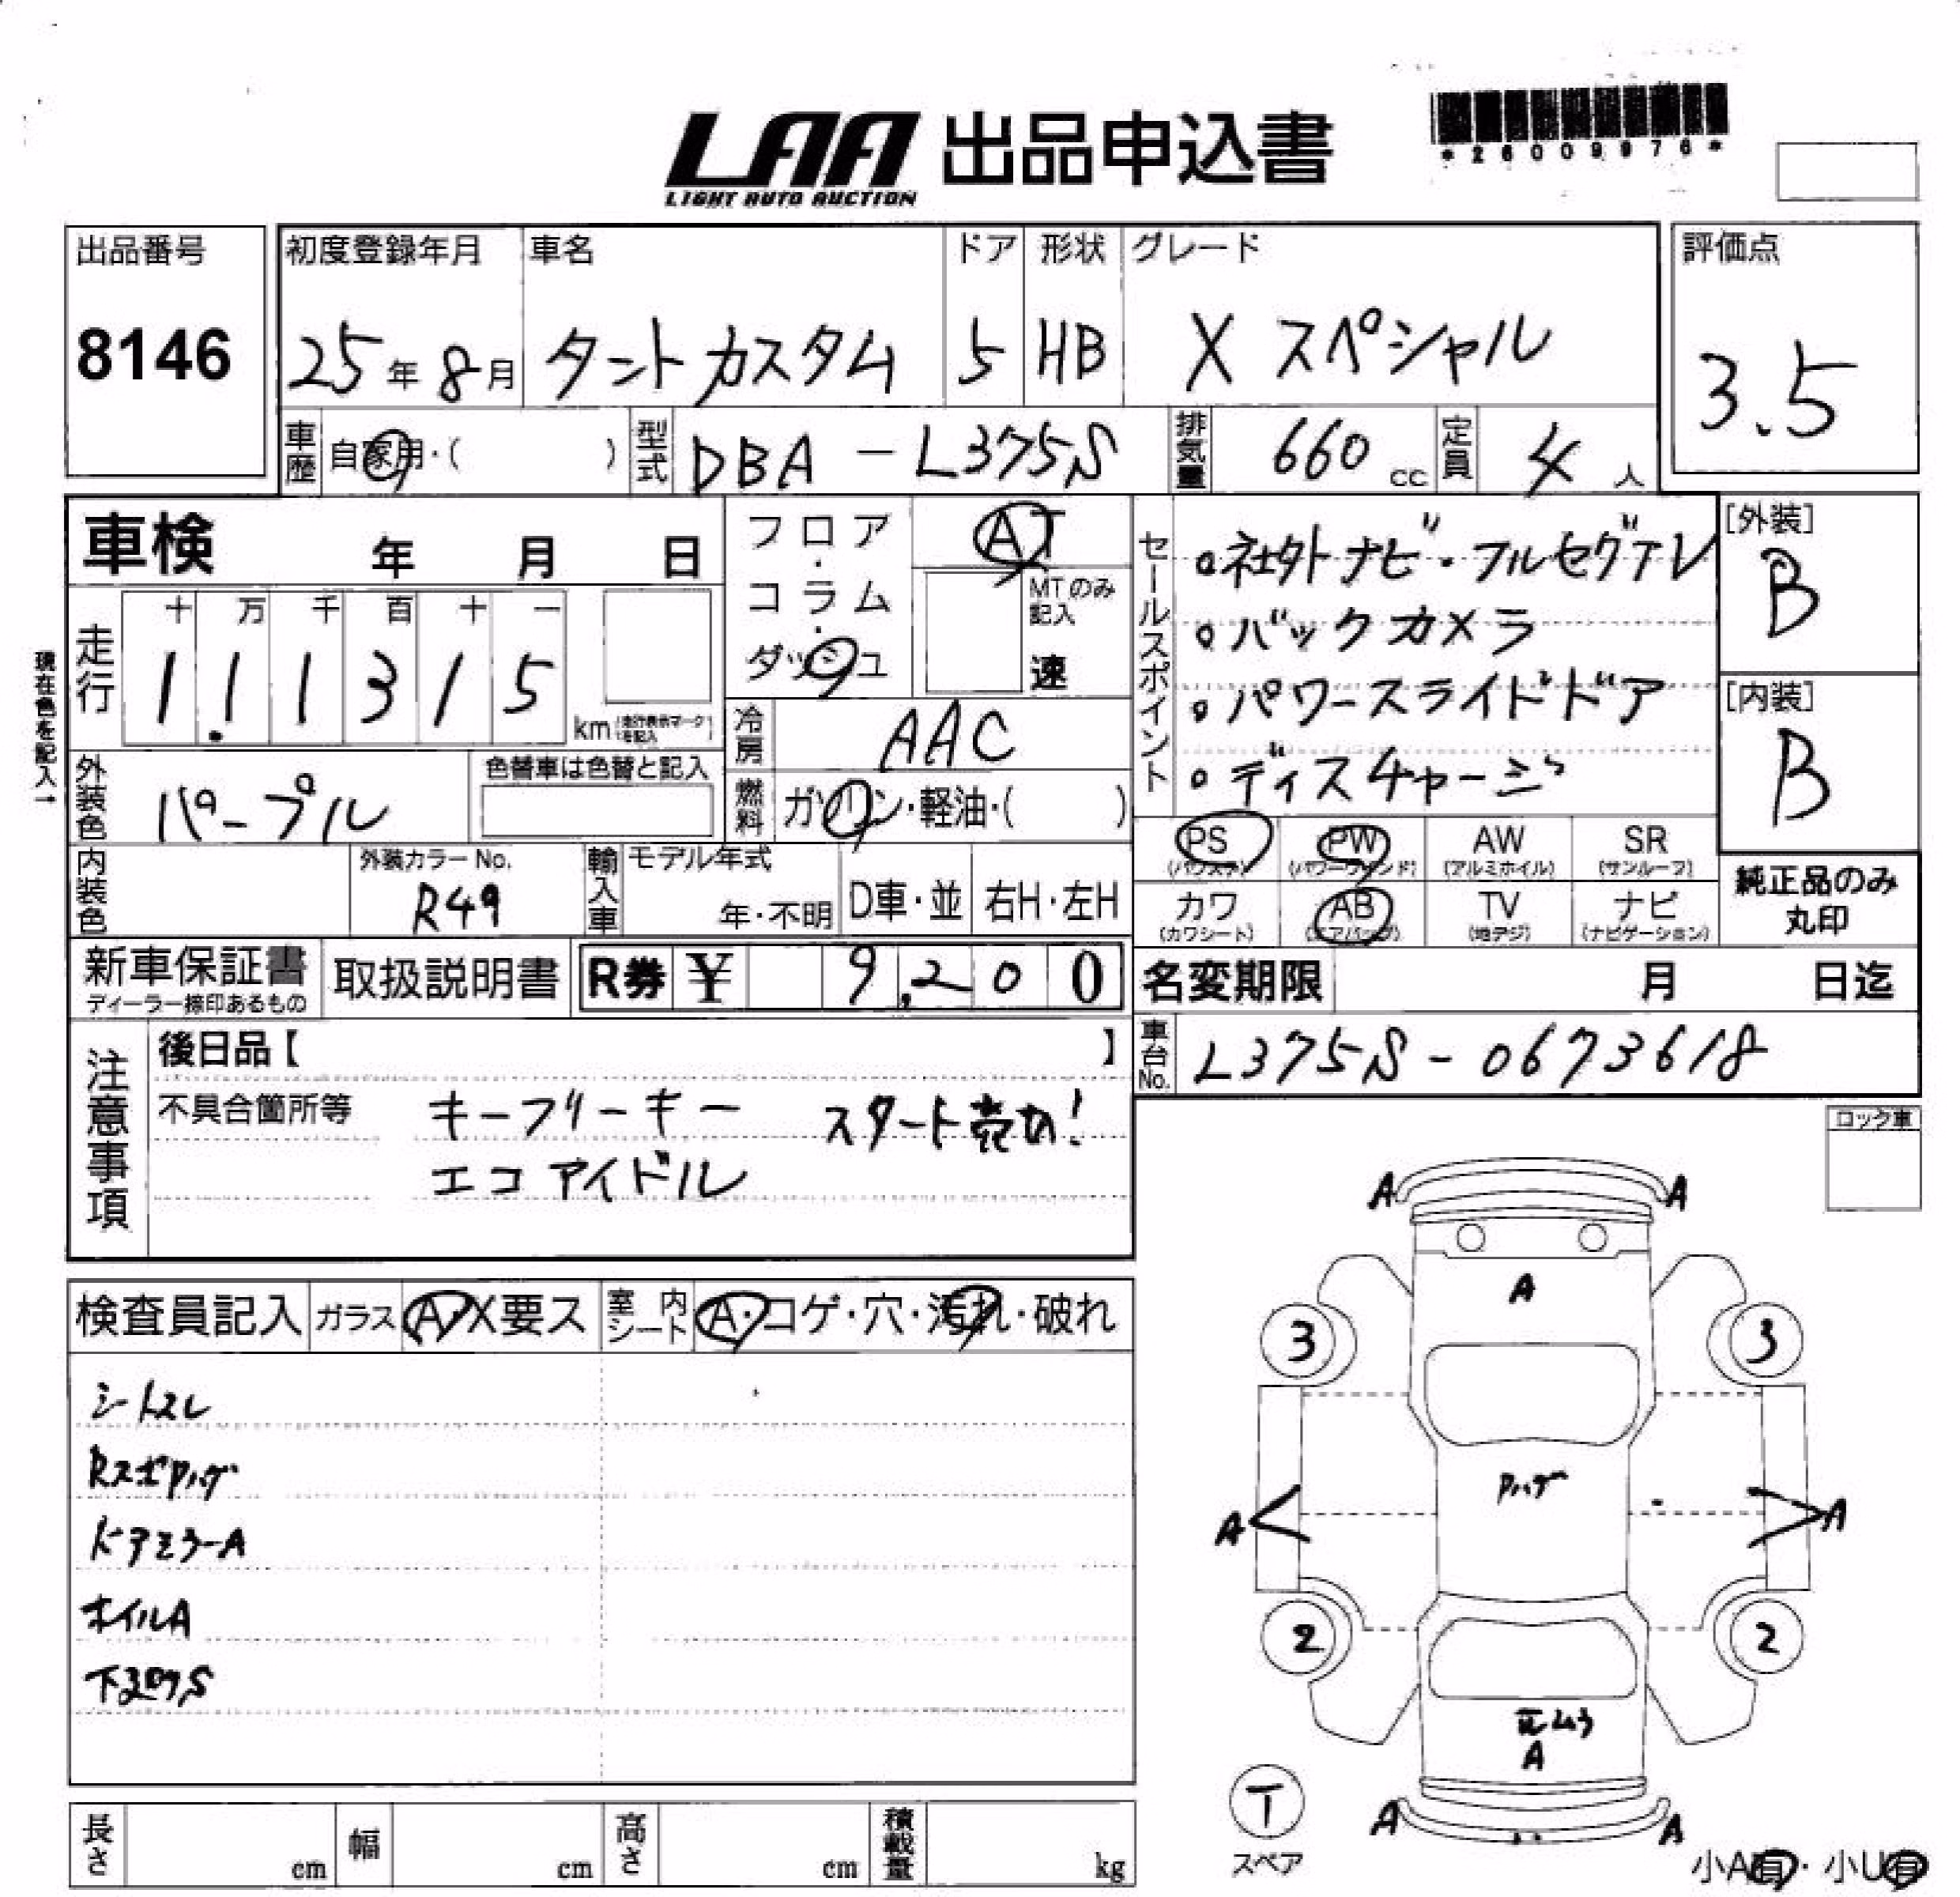 LAA 出品申込書
LIGHT AUTO AUCTION
*26009976*
出品番号
8146
初度登録年月 車名 ドア 形状 グレード 評価点
25年8月 タントカスタム 5 HB X スペシャル 3.5
車歴 自家用・( ) 型式 DBA-L375S 排気量 660 cc 定員 4 人
車検 年 月 日
フロア・コラム・ダッシュ AT
MTのみ記入
速
セールスポイント
・社外ナビ・フルセグTV
・バックカメラ
・パワースライドドア
・ディスチャージ
[外装]
B
[内装]
B
現在色を記入→
走行 十 万 千 百 十 一
1.11315 km (走行表示マークを記入)
冷房 AAC
外装色 パープル 色替車は色替と記入
燃料 ガソリン・軽油・( )
PS (パワステ) PW (パワーウインド) AW (アルミホイル) SR (サンルーフ)
カワ (カワシート) AB (エアバッグ) TV (地デジ) ナビ (ナビゲーション)
純正品のみ
丸印
内装色 外装カラーNo. R49 輸入車 モデル年式 年・不明 D車・並 右H・左H
新車保証書 取扱説明書 R券 ¥ 9,200
ディーラー捺印あるもの
名変期限 月 日迄
車台No. L375S-0673618
注意事項
後日品【 】
不具合箇所等 キーフリーキー スタート売切!
エコアイドル
ロック車
検査員記入 ガラス A・X要ス 室内シート A・コゲ・穴・汚れ・破れ
シートスレ
ドアミラーA
ホイルA
A A
A
3 3
A A
2 2
A
A A
T
スペア
小A有・小U有
長さ cm 幅 cm 高さ cm 積載量 kg